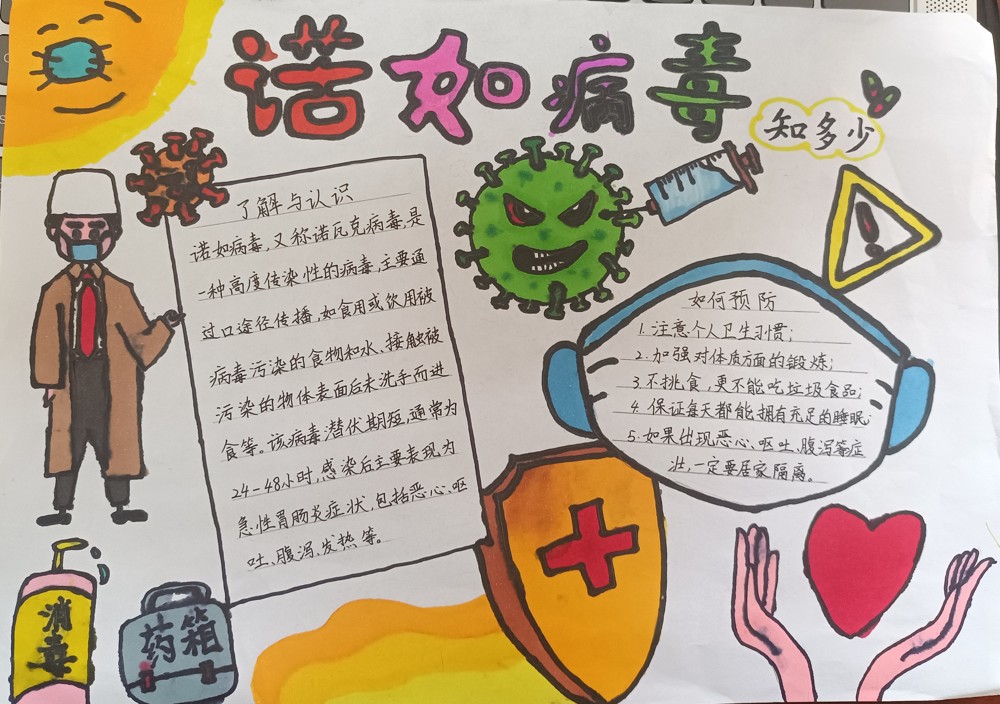 诺如病毒
知多少
了解与认识
诺如病毒,又称诺瓦克病毒,是
一种高度传染性的病毒,主要通
过口途径传播,如食用或饮用被
病毒污染的食物和水、接触被
污染的物体表面后未洗手而进
食等。该病毒潜伏期短,通常为
24-48小时,感染后主要表现为
急性胃肠炎症状,包括恶心、呕
吐、腹泻、发热等。
如何预防
1.注意个人卫生习惯;
2.加强对体质方面的锻炼;
3.不挑食,更不能吃垃圾食品;
4.保证每天都能拥有充足的睡眠;
5.如果出现恶心、呕吐、腹泻等症
状,一定要居家隔离。
消毒
药箱